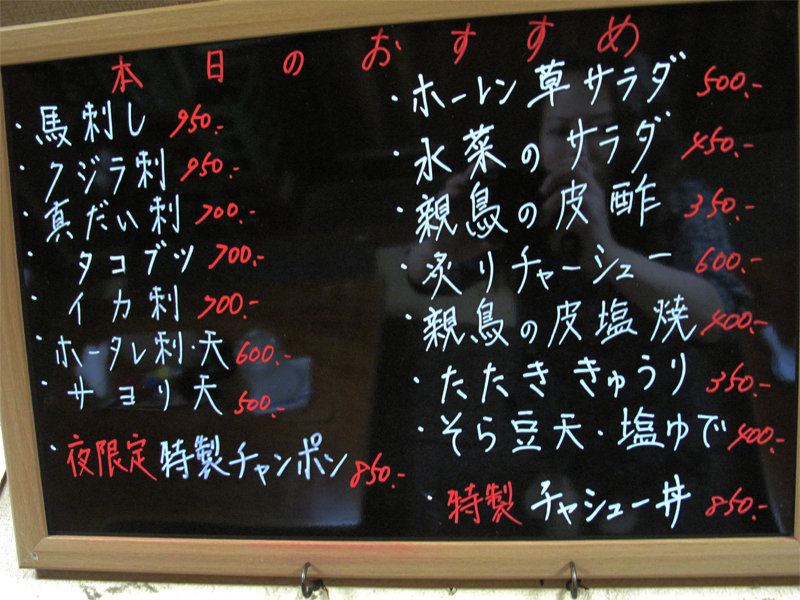 本日のおすすめ
・馬刺し 950.-
・クジラ刺 950.-
・真だい刺 700.-
・タコブツ 700.-
・イカ刺 700.-
・ホータレ刺・天 600.-
・サヨリ天 500.-
・夜限定 特製チャンポン 850.-
・ホーレン草サラダ 500.-
・水菜のサラダ 450.-
・親鳥の皮酢 350.-
・炙りチャーシュー 600.-
・親鳥の皮塩焼 400.-
・たたききゅうり 350.-
・そら豆天・塩ゆで 400.-
・特製 チャシュー丼 850.-